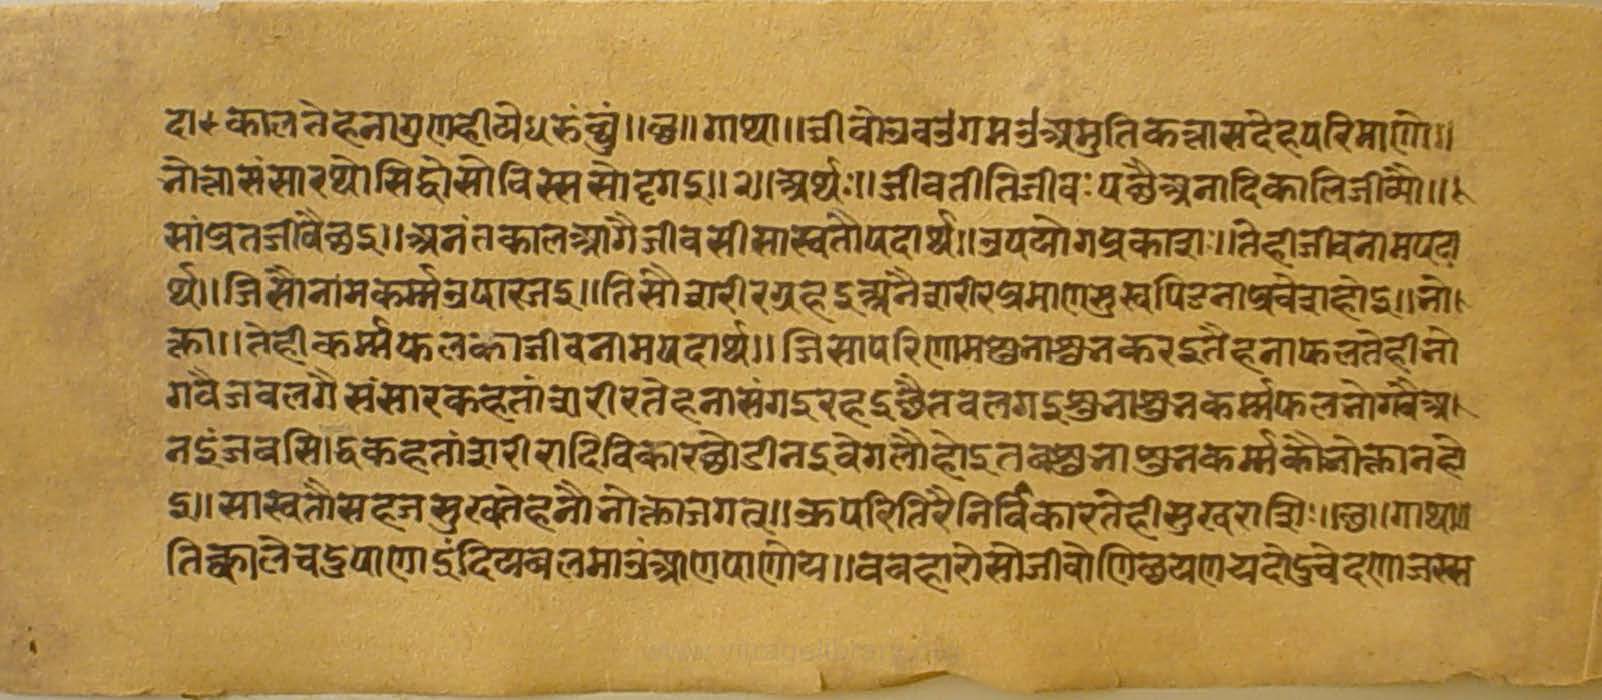 दा ४ काल तेहना गुणहीये ५ कं व्युं ॥ छ ॥ गाथा ॥ जीवो उवउगमउ अमुति कत्ता सदेहपरिमाणो ॥
भोत्ता संसारथो सिद्धो सो विस्ससोढ्ढगइ ॥ २ ॥ अर्थः ॥ जीवतीति जीवः पछै अनादिकालि जीव्यौ ॥
सांप्रत जीवै छइ ॥ अनंतकाल आगै जीवसी सास्वतौ पदार्थ ॥ उपयोगप्रकाशः ॥ तेही जीवनाम पदा
र्थ ॥ जिसौ नांमकर्म्म उपारजइ ॥ तिसौ शरीर ग्रहइ अनै शरीरप्रमाण सुख पिडना प्रवेश होइ ॥ भो
क्ता ॥ तेही कर्म्मफलका जीवनाम पदार्थ ॥ जिसा परिणाम शुभाशुभ करइ तेहना फल तेही भो
गवै जब लगै संसार कहतां शरीर तेहना संगइ रहइ छै तब लगइ शुभाशुभ कर्म्मफल भोगवै अ
नइं जब सिद्ध कहतां शरीरादि विकार छोडीनइ वेगलौ होइ तब शुभाशुभ कर्म्मकौ भोक्ता न हो
इ ॥ सास्वतौ सहज सुख तेहनौ भोक्ता जगत् ॥ ऊपरि तिरै निर्विकार तेही सुखराशिः ॥ छ ॥ गाथा ॥
तिक्काले चदुपाणा इंदिय बलमाउं आणपाणो य ॥ ववहारो सो जीवो णिछयणयदो दु चेदणा जस्स